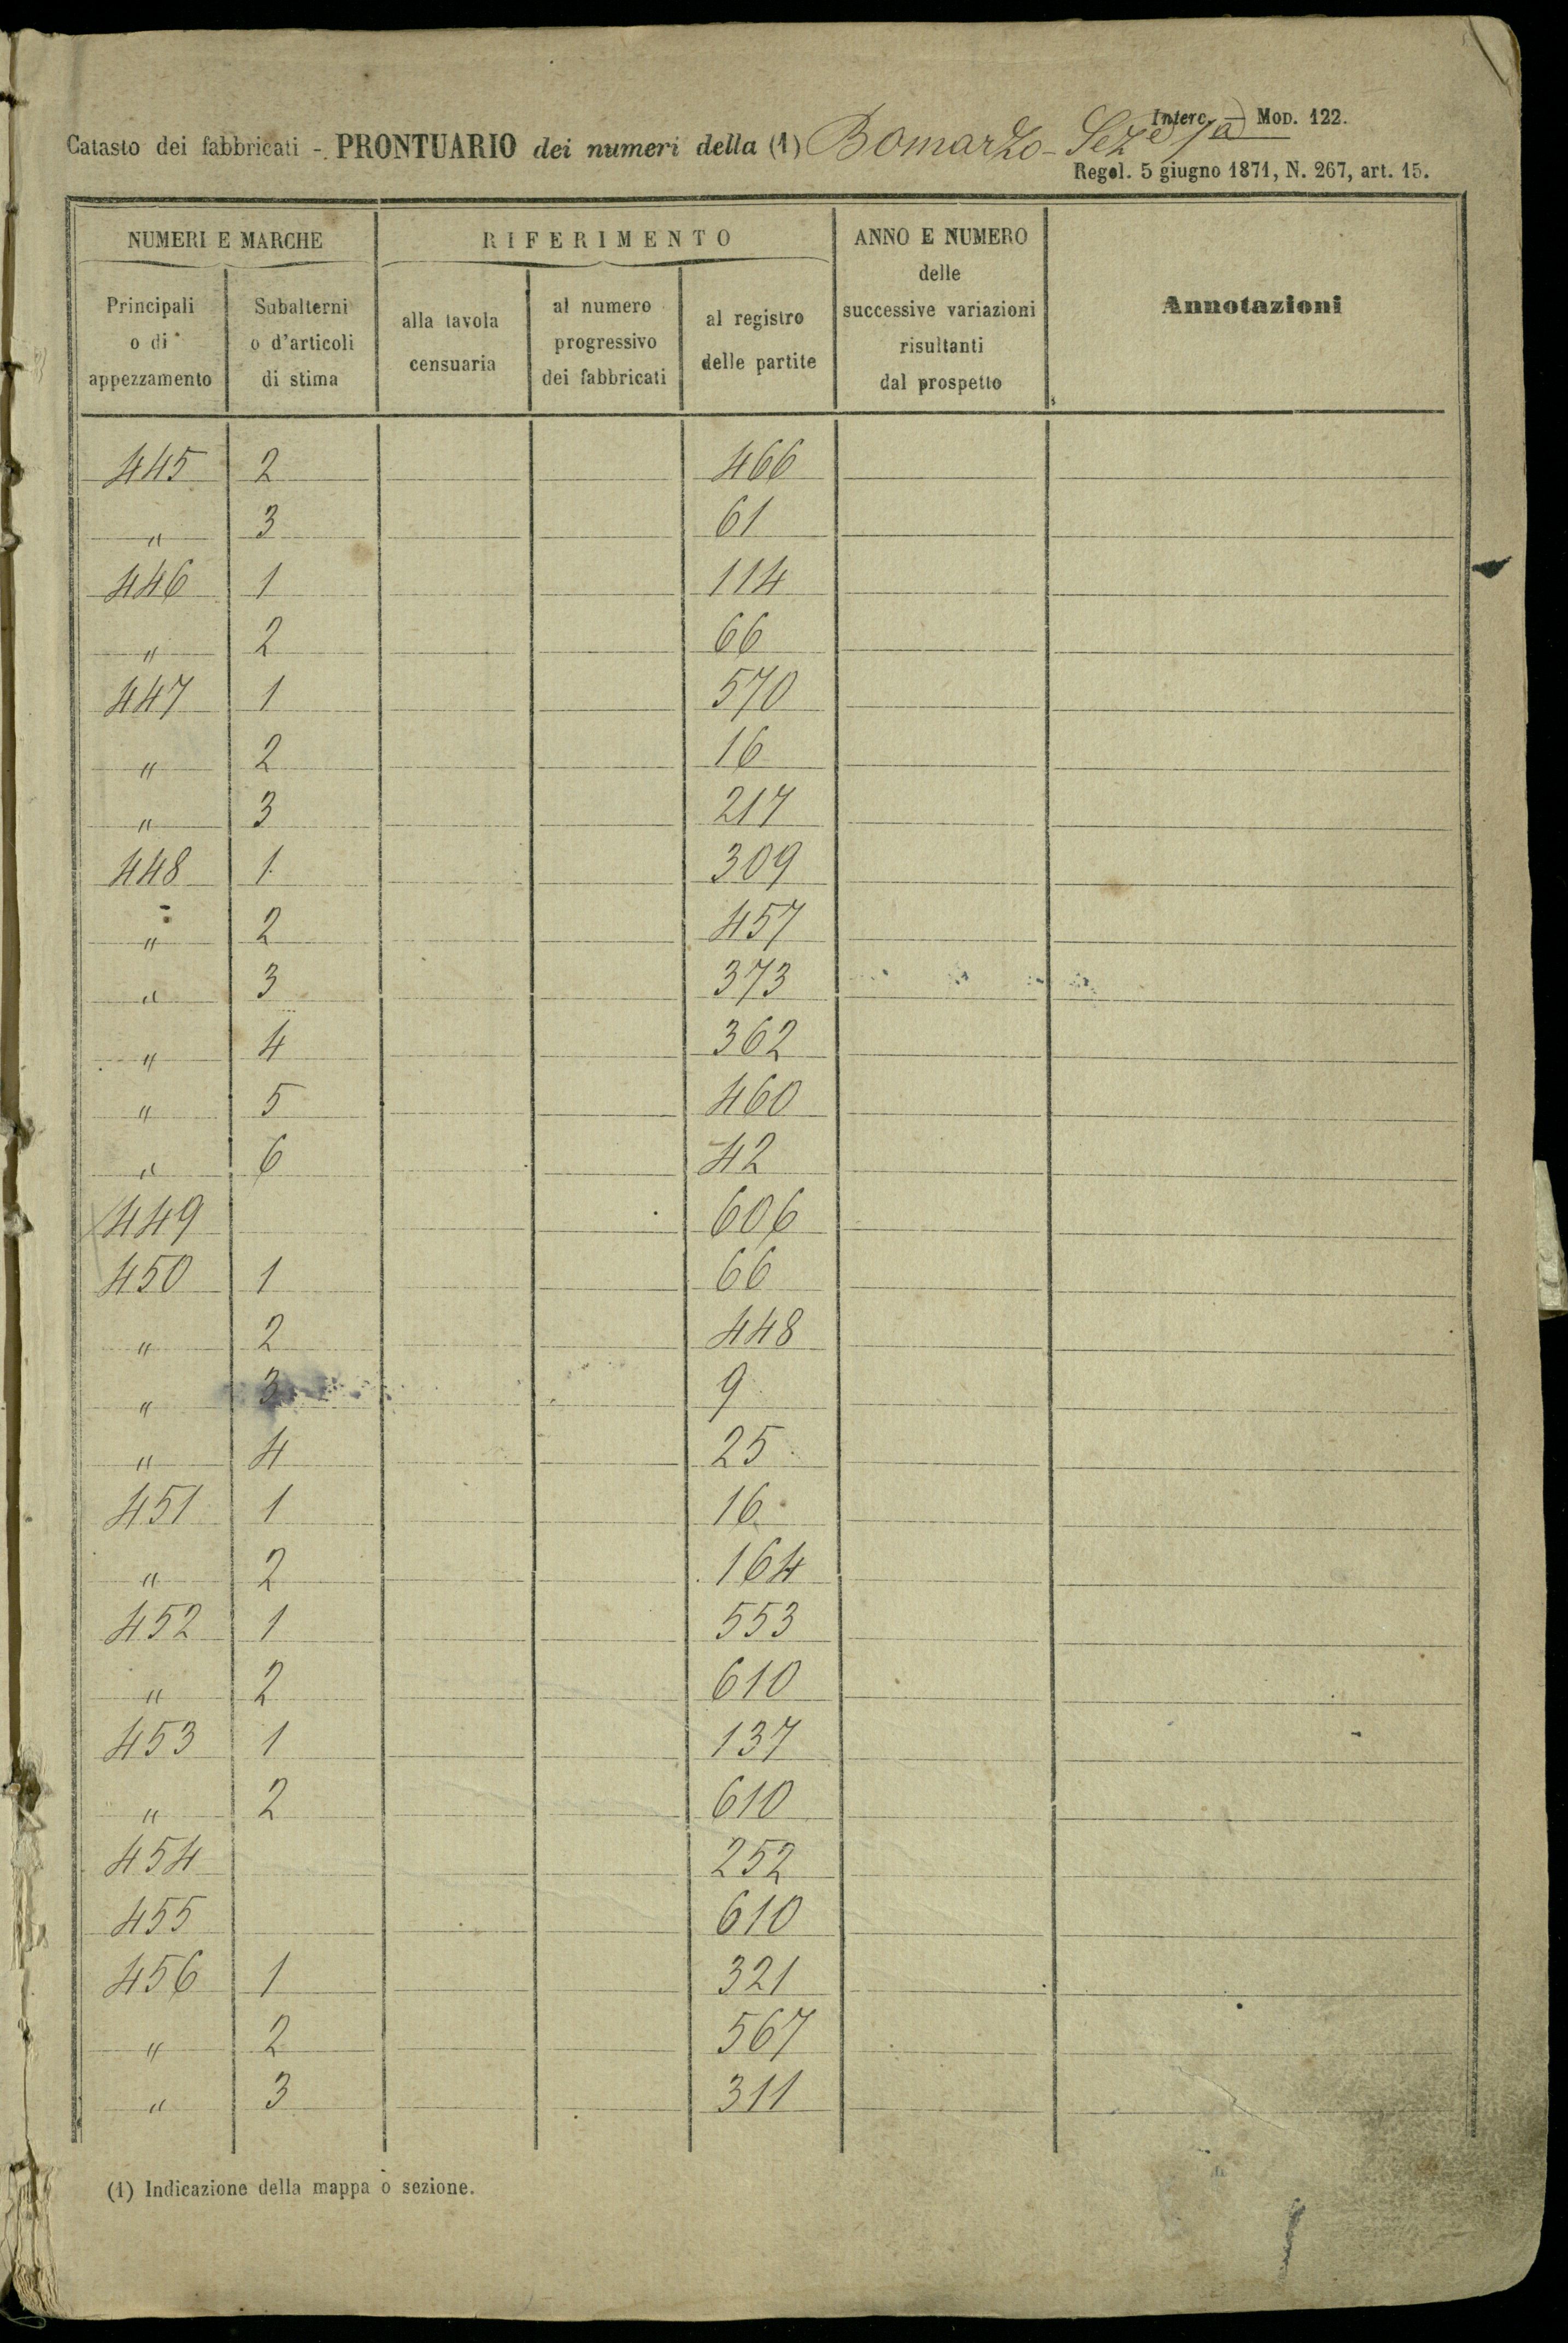 Interc. Mod. 122.
Catasto dei fabbricati - PRONTUARIO dei numeri della (1) Bomarzo - Seze 1a
Regol. 5 giugno 1871, N. 267, art. 15.
NUMERI E MARCHE RIFERIMENTO ANNO E NUMERO delle successive variazioni risultanti dal prospetto Annotazioni
Principali o di appezzamento Subalterni o d'articoli di stima alla tavola censuaria al numero progressivo dei fabbricati al registro delle partite
445 2 466
" 3 61
446 1 114
" 2 66
447 1 570
" 2 16
" 3 217
448 1 309
" 2 457
" 3 373
" 4 362
" 5 460
" 6 42
449 606
450 1 66
" 2 448
" 3 9
" 4 25
451 1 16
" 2 164
452 1 553
" 2 610
453 1 137
" 2 610
454 252
455 610
456 1 321
" 2 567
" 3 311
(1) Indicazione della mappa o sezione.